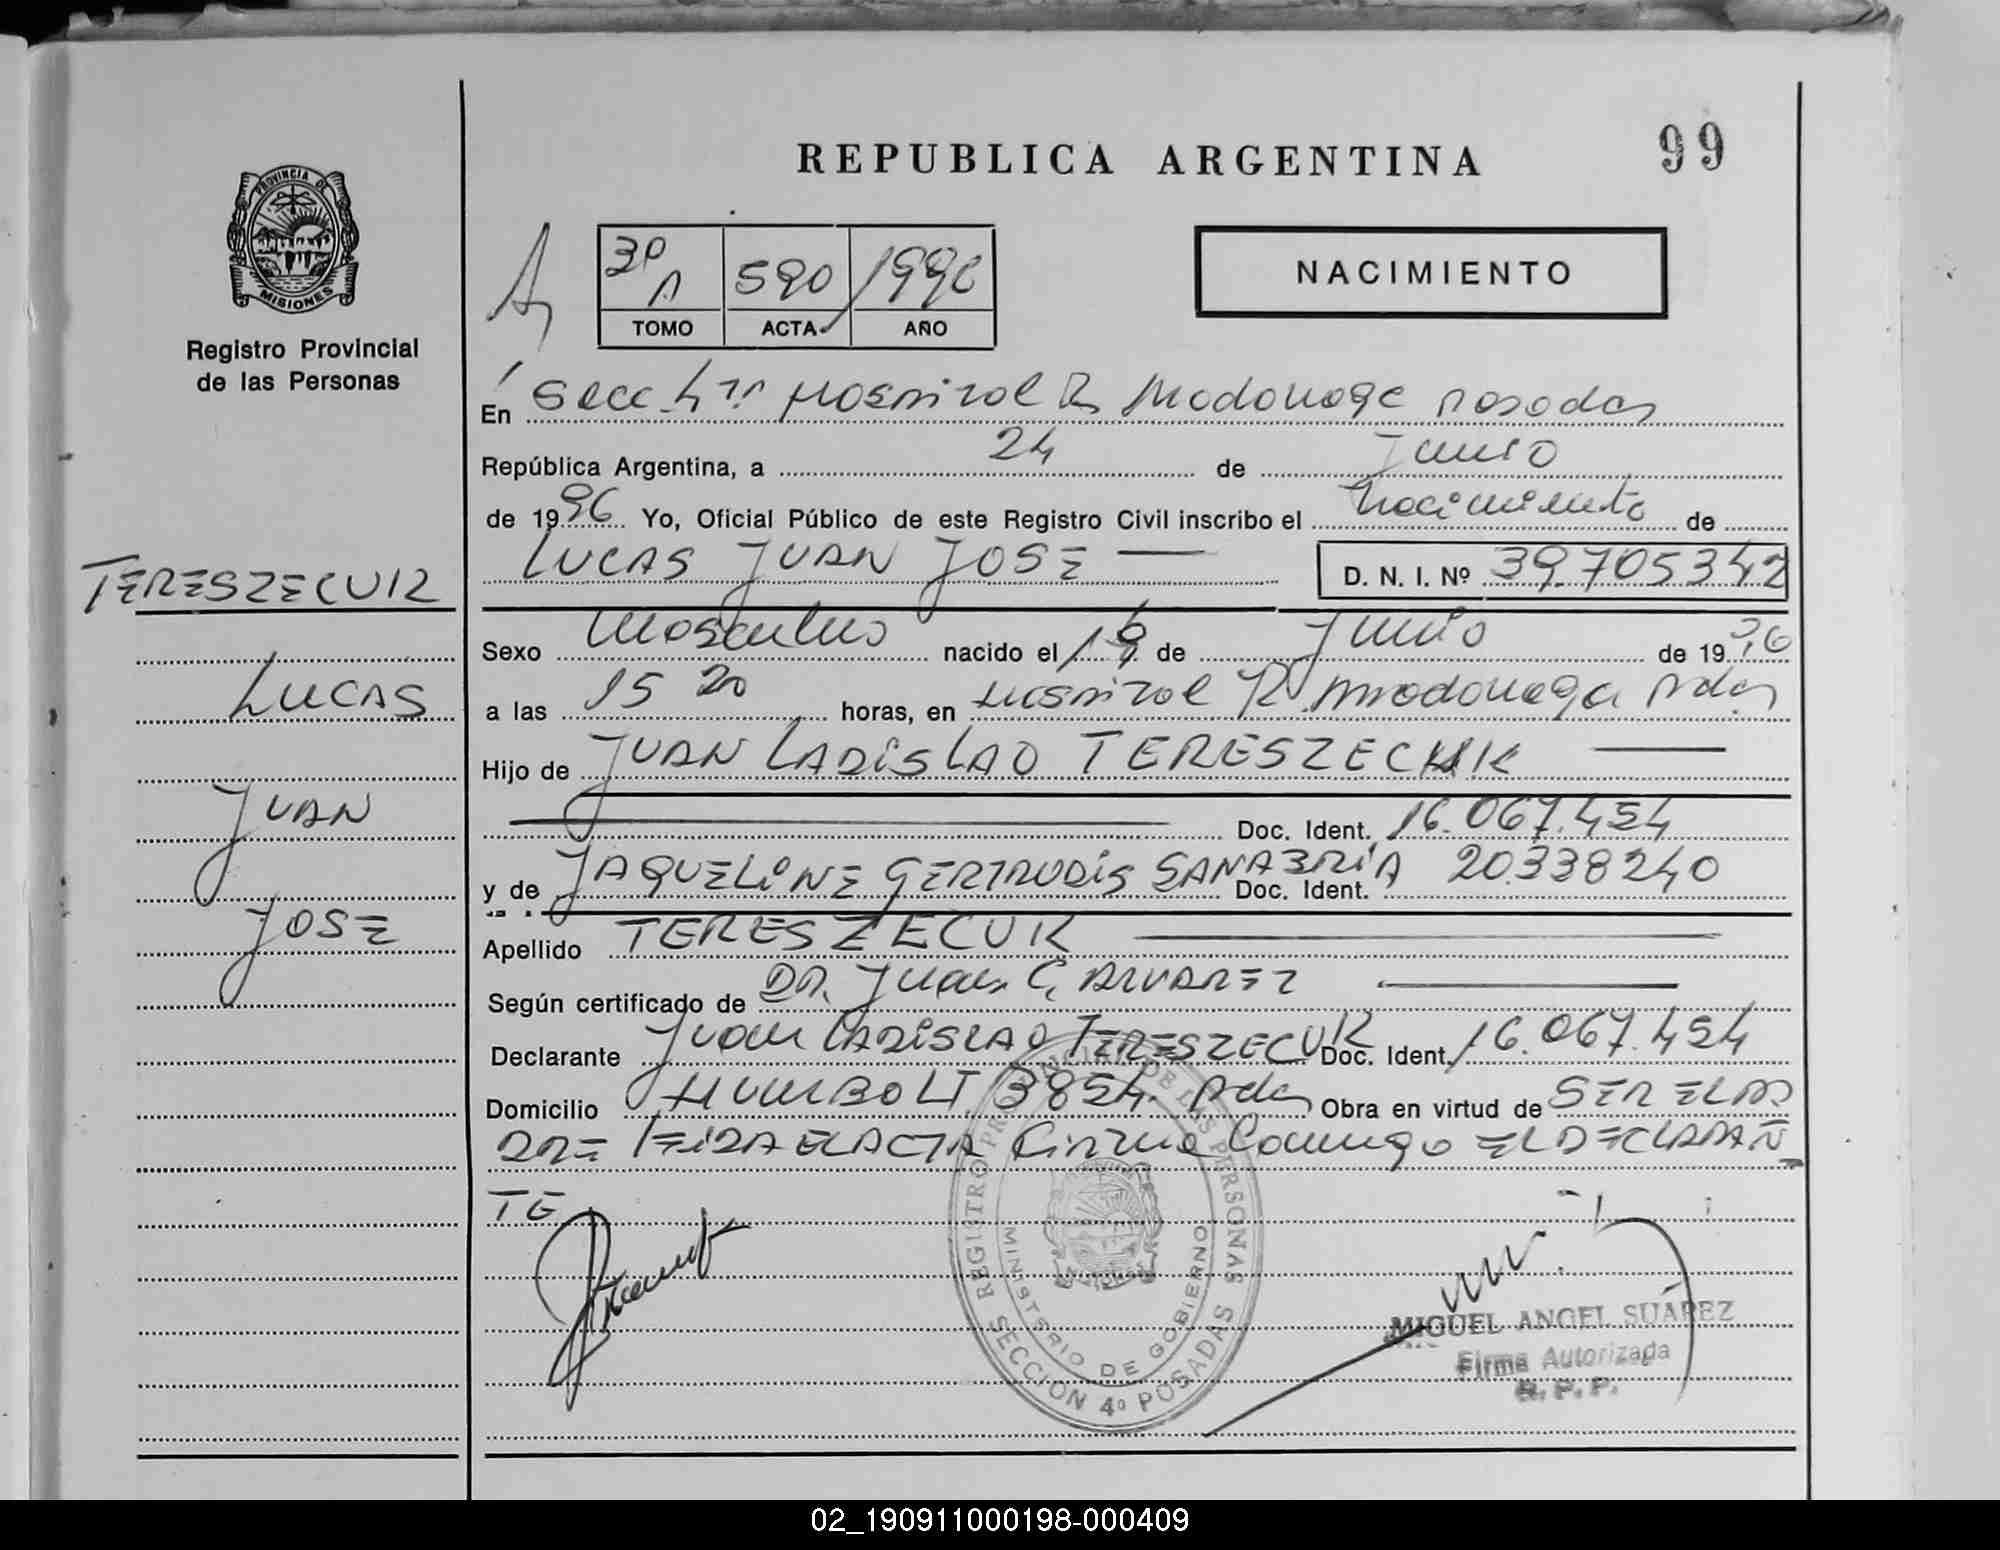 REPUBLICA ARGENTINA
99
PROVINCIA DE
MISIONES
Registro Provincial
de las Personas
3º A 590 1996
TOMO ACTA AÑO
NACIMIENTO
En Secc 4ta Hospital R Madariaga Posadas
República Argentina, a 24 de Junio
de 1996 Yo, Oficial Público de este Registro Civil inscribo el Nacimiento de
LUCAS JUAN JOSE D. N. I. Nº 39.705342
TERESZECUK
LUCAS
JUAN
JOSE
Sexo Masculino nacido el de Junio de 1996
a las 15 20 horas, en Hospital R. Madariaga Pdas
Hijo de JUAN LADISLAO TERESZECUK
Doc. Ident. 16.067.454
y de JAQUELINE GERTRUDIS SANABRIA Doc. Ident. 20.338240
Apellido TERESZECUK
Según certificado de DR. Juan C. ALVAREZ
Declarante Juan LADISLAO TERESZECUK Doc. Ident. 16.067.454
Domicilio HUMBOLT 3854. Pdas Obra en virtud de SER EL PA
DRE LEIDA EL ACTA Firma Conmigo EL DECLARAN
TE
REGISTRO PROVINCIAL DE LAS PERSONAS
MINISTERIO DE GOBIERNO
SECCION 4º POSADAS
MIGUEL ANGEL SUÁREZ
Firma Autorizada
R. P. P.
02_190911000198-000409